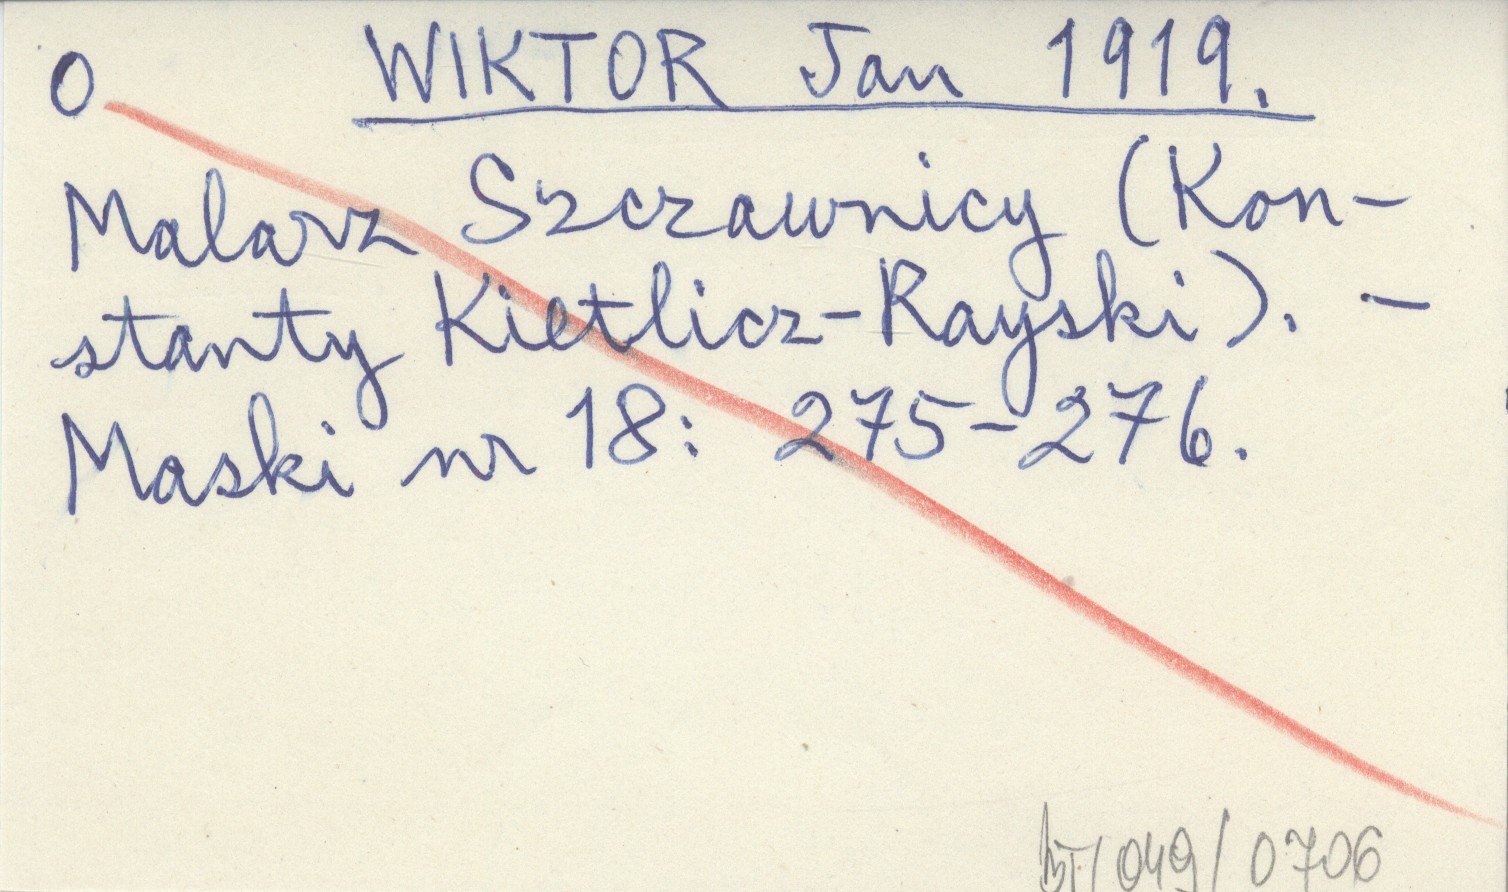 O WIKTOR Jan 1919.
Malarz Szczawnicy (Kon-
stanty Kietlicz-Rayski). -
Maski nr 18: 275-276.
BT/049/0706